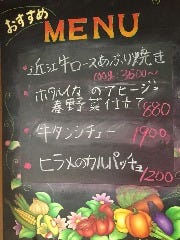 おすすめ
MENU
・近江牛ロースあぶり焼き
100g:3500～
・ホタルイカのアヒージョ
春野菜付け 880
・牛タンシチュー 1900
・ヒラメのカルパッチョ
1200